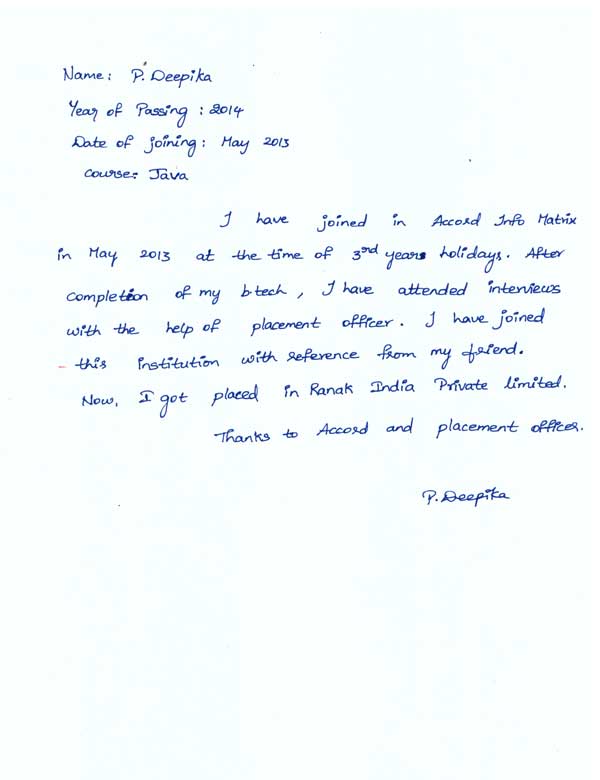 Name: P. Deepika
Year of Passing : 2014
Date of joining: May 2013
Course: Java
I have joined in Accord Info Matrix
in May 2013 at the time of 3rd years holidays. After
completion of my btech, I have attended interviews
with the help of placement officer. I have joined
this institution with reference from my friend.
Now, I got placed in Ranak India Private limited.
Thanks to Accord and placement officer.
P. Deepika